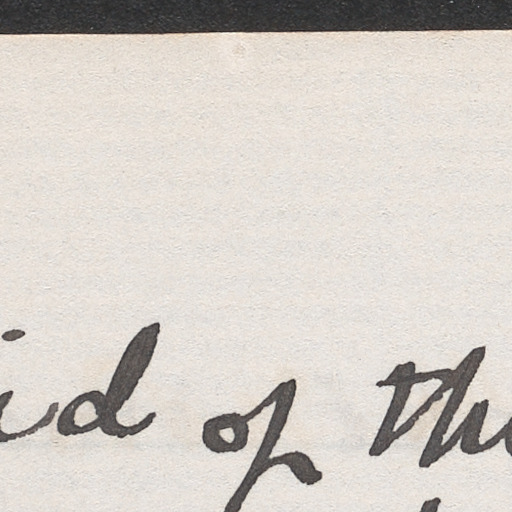 id of the